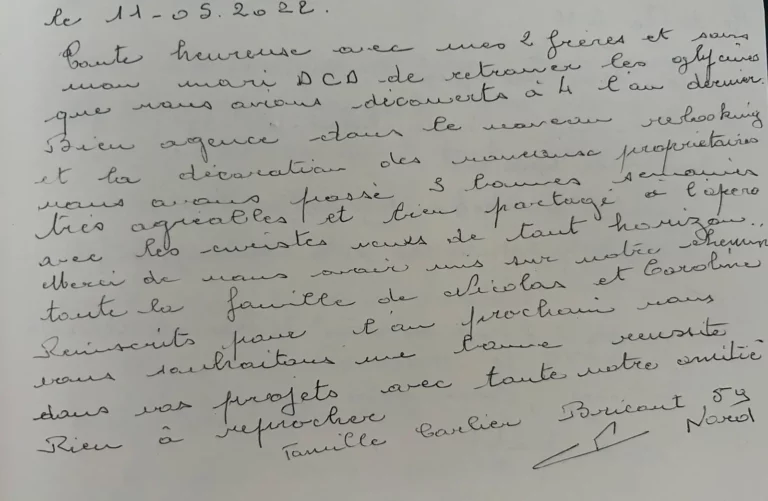 le 11-05.2022.
Toute heureuse avec mes 2 frères et sans
mon mari DCD de retrouver les glycines
que nous avions découverts à 4 l'an dernier.
Bien agencé dans le nouveau relooking
et la décoration des nouveaux propriétaires
nous avons passé 3 bonnes semaines
très agréables et bien partagé à l'apéro
avec les curistes venus de tout horizon..
Merci de nous avoir mis sur notre chemin
toute la famille de Nicolas et Caroline
Reinscrits pour l'an prochain nous
vous souhaitons une bonne reussite
dans vos projets avec toute notre amitié
Rien à reprocher
Famille Carlier Bricout 59
Nord